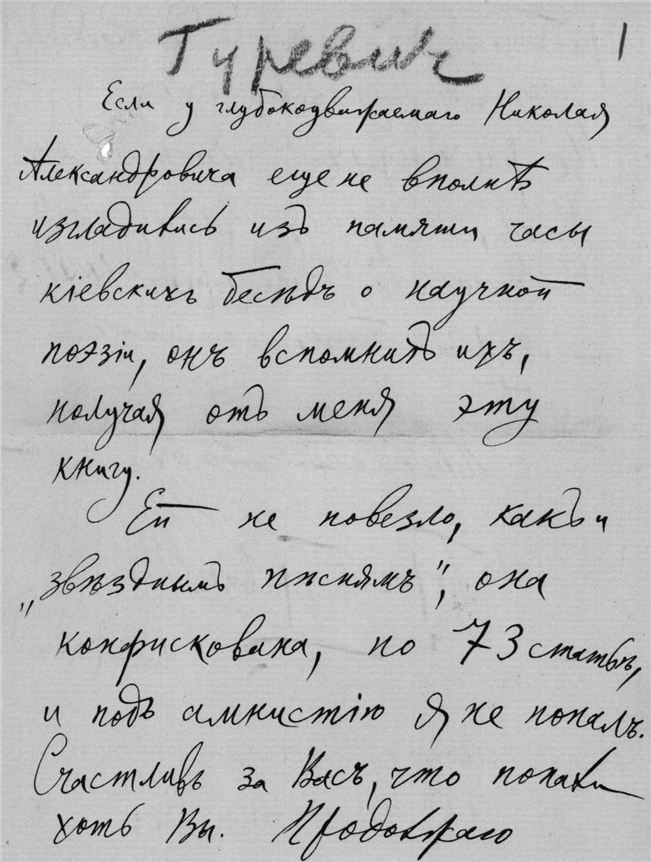 Гуревич
1
Если у глубокоуважаемаго Николая
Александровича еще не вполнѣ
изгладились изъ памяти часы
кіевскихъ бесѣдъ о научной
поэзіи, онъ вспомнитъ ихъ,
получая отъ меня эту
книгу.
Ей не повезло, какъ и
„звѣзднымъ пѣснямъ“, она
конфискована, по 73 статьѣ,
и подъ амнистію я не попалъ.
Счастливъ за Васъ, что попали
хоть Вы. Продолжаю